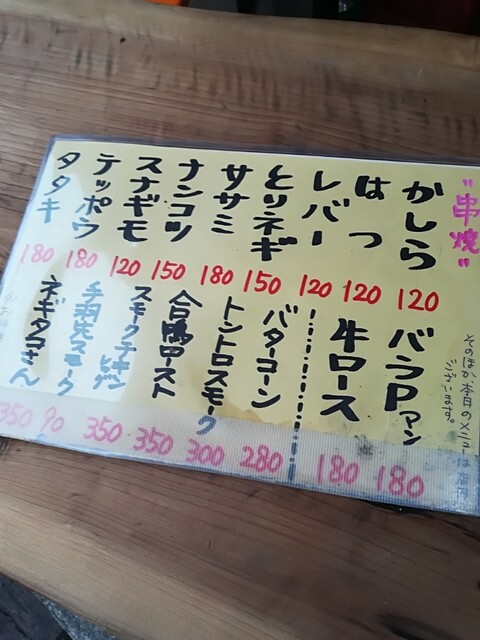 "串焼"
かしら 120
はつ 120
レバー 120
とりネギ 150
ササミ 180
ナンコツ 150
スナギモ 120
テッポウ 180
タタキ 180
そのほか本日のメニューは店内
ございます。
バラPマン 180
牛ロース 180
バターコーン 280
トントロスモーク 300
合鴨ロースト 350
スモークチキン 350
手羽先スモーク 90
ネギタコさん 350